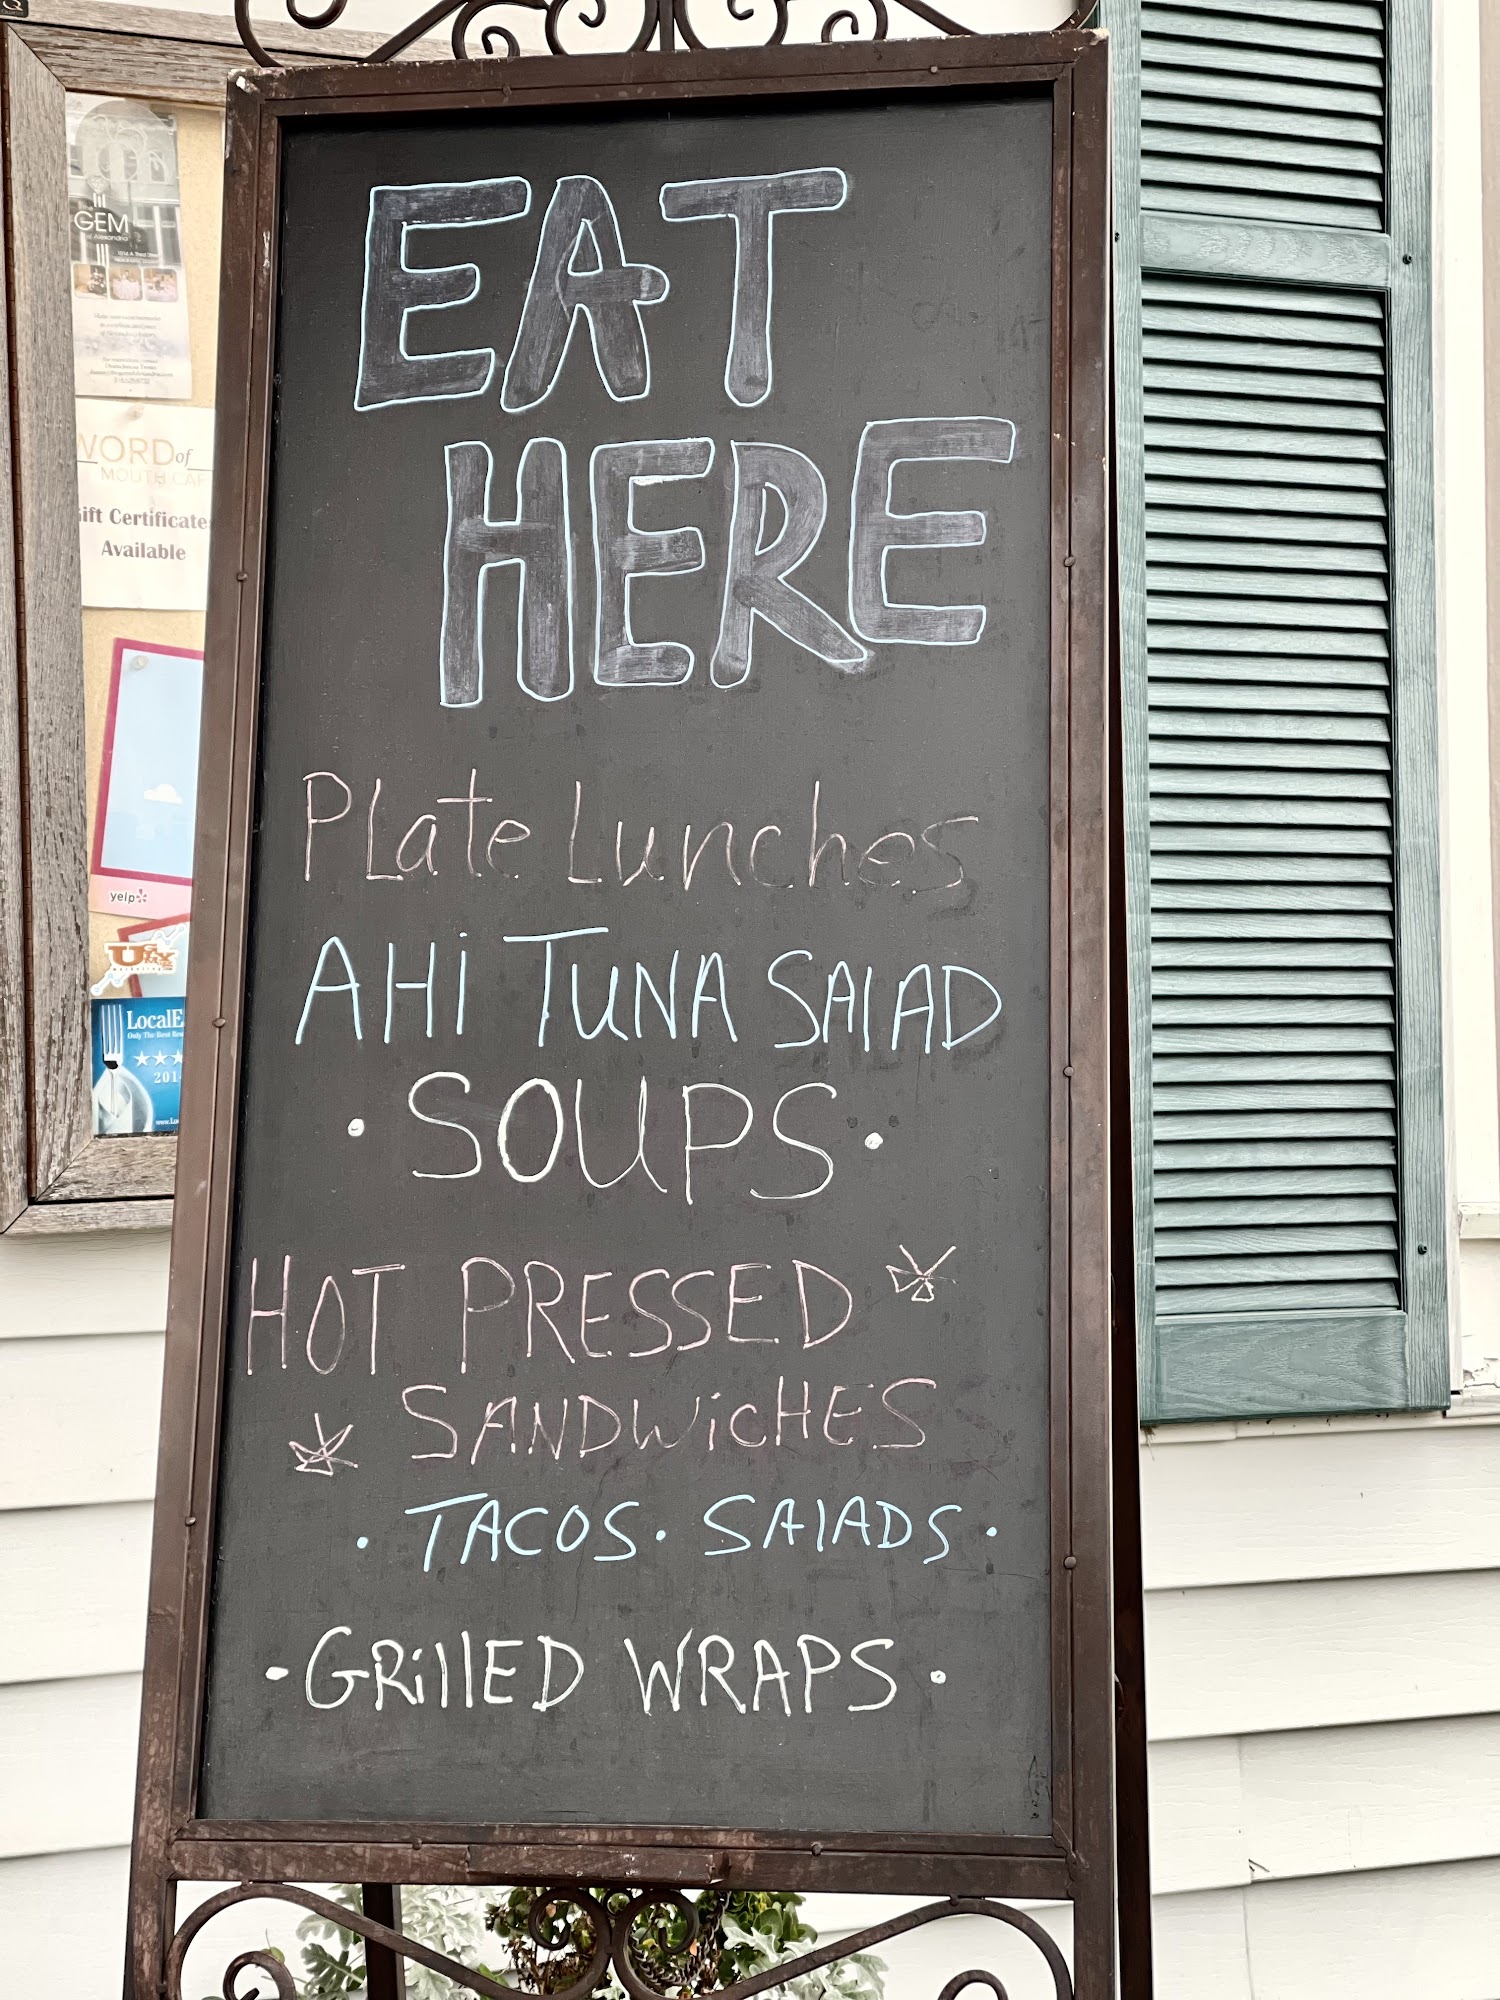 EAT
HERE
Plate Lunches
AHi TUNA SAlAD
• SOUPS •
HOT PRESSED
SANDWicHES
• TACOS • SAlADS •
• GRillED WRAPS •
GEM
of Alexandria
WORD of
MOUTH CAF
ift Certificate
Available
yelp
LocalE
201